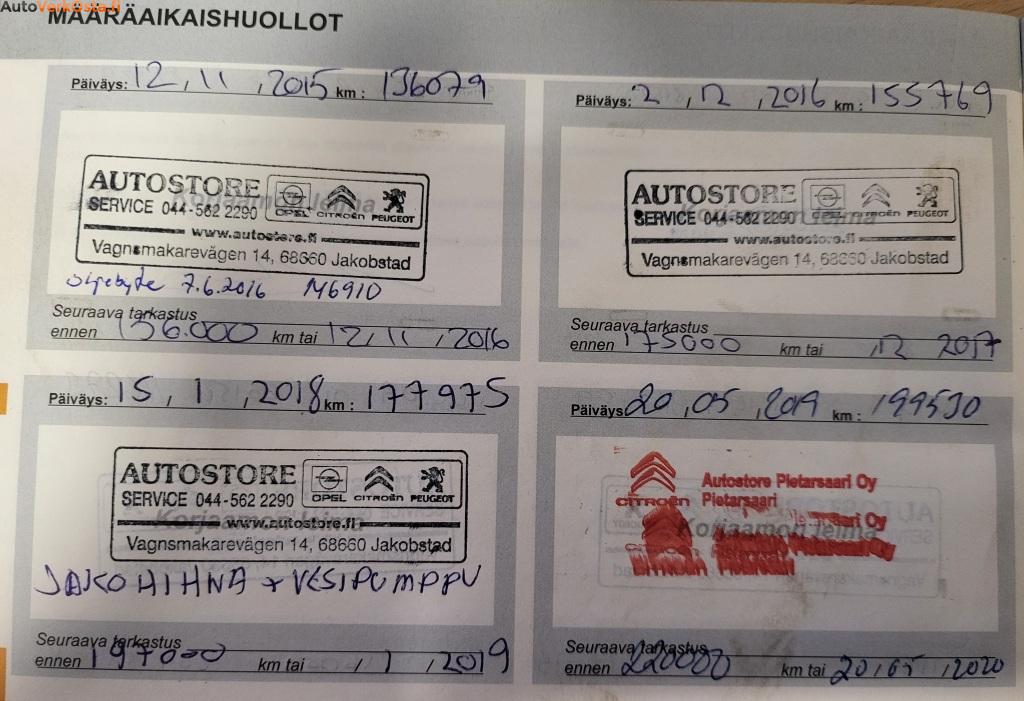 AutoVerkosta.fi
MÄÄRÄAIKAISHUOLLOT
Päiväys: 12, 11, 2015 km: 136079
AUTOSTORE
SERVICE 044-562 2290
OPEL CITROËN PEUGEOT
www.autostore.fi
Vagnsmakarevägen 14, 68660 Jakobstad
oljebyte 7.6.2016 146910
Seuraava tarkastus
ennen 156.000 km tai 12, 11, 2016
Päiväys: 2, 12, 2016 km: 155769
AUTOSTORE
SERVICE 044-562 2290
OPEL CITROËN PEUGEOT
www.autostore.fi
Vagnsmakarevägen 14, 68660 Jakobstad
Seuraava tarkastus
ennen 175000 km tai , 12 2017
Päiväys: 15, 1, 2018 km: 177975
AUTOSTORE
SERVICE 044-562 2290
OPEL CITROËN PEUGEOT
www.autostore.fi
Vagnsmakarevägen 14, 68660 Jakobstad
JAKOHIHNA + VESIPUMPPU
Seuraava tarkastus
ennen 197000 km tai , 1, 2019
Päiväys: 20, 05, 2019 km: 199530
CITROËN
Autostore Pietarsaari Oy
Pietarsaari
Korjaamon leima
Seuraava tarkastus
ennen 220000 km tai 20, 05, 2020